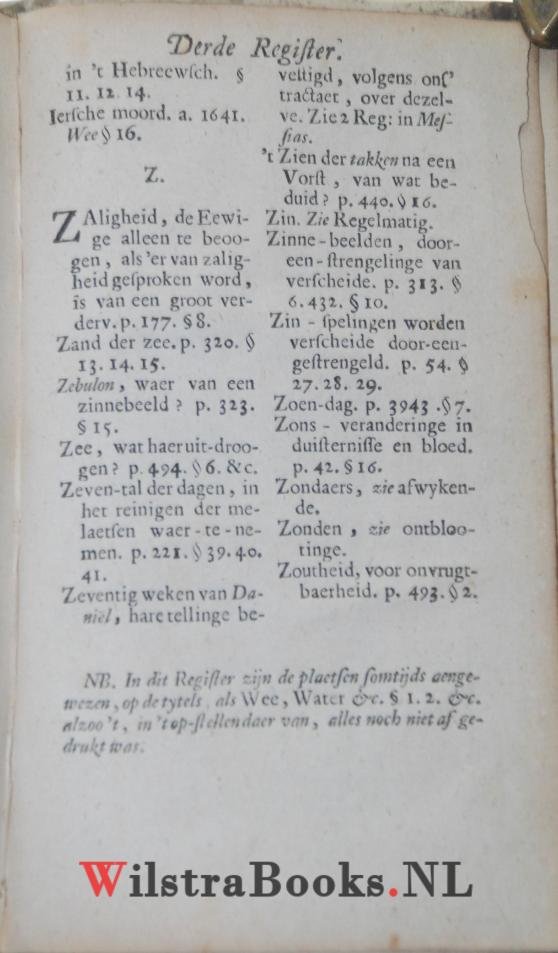 Derde Regiſter.
in 't Hebreewſch. §
11. 12. 14.
Ierſche moord. a. 1641.
Wee § 16.
Z.
ZAligheid, de Eewi-
ge alleen te beoo-
gen, als 'er van zalig-
heid geſproken word,
is van een groot ver-
derv. p. 177. § 8.
Zand der zee. p. 320. §
13. 14. 15.
Zebulon, waer van een
zinnebeeld? p. 323.
§ 15.
Zee, wat haer uit-droo-
gen? p. 494. § 6. &c.
Zeven-tal der dagen, in
het reinigen der me-
laetſen waer-te-ne-
men. p. 221. § 39. 40.
41.
Zeventig weken van Da-
niël, hare tellinge be-
veſtigd, volgens onſ'
tractaet, over dezel-
ve. Zie 2 Reg: in Meſ-
ſias.
't Zien der takken na een
Vorſt, van wat be-
duid? p. 440. § 16.
Zin. Zie Regelmatig.
Zinne-beelden, door-
een-ſtrengelinge van
verſcheide. p. 313. §
6. 432. § 10.
Zin-ſpelingen worden
verſcheide door-een-
geſtrengeld. p. 54. §
27. 28. 29.
Zoen-dag. p. 3943 .§ 7.
Zons-veranderinge in
duiſterniſſe en bloed.
p. 42. § 16.
Zondaers, zie afwyken-
de.
Zonden, zie ontbloo-
tinge.
Zoutheid, voor onvrugt-
baerheid. p. 493. § 2.
NB. In dit Regiſter zijn de plaetſen ſomtijds aenge-
wezen, op de tytels, als Wee, Water &c. § 1. 2. &c.
alzoo 't, in 't op-ſtellen daer van, alles noch niet af ge-
drukt was.
WilstraBooks.NL